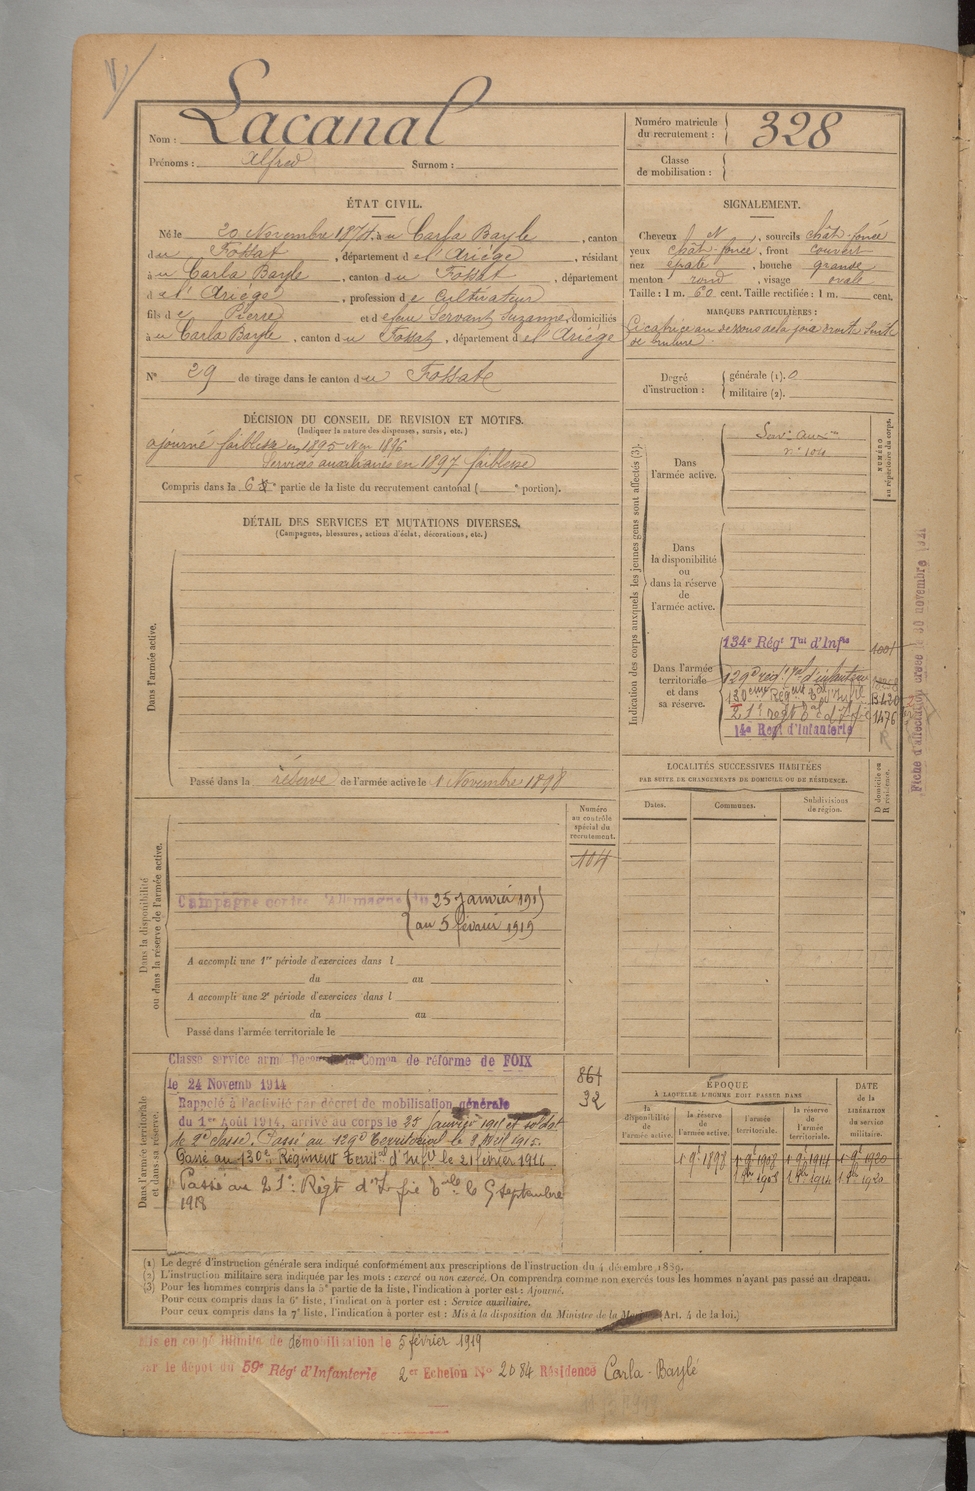 Nom : Lacanal
Prénoms : Alfred Surnom :
Numéro matricule du recrutement : 328
Classe de mobilisation :
ÉTAT CIVIL.
Né le 20 Novembre 1874, à u Carla Bayle, canton
d u Fossat, département d e l'Ariège, résidant
à u Carla Bayle, canton d u Fossat, département
d e l'Ariège, profession d e Cultivateur
fils d e Pierre et d e feu Servant Suzanne, domiciliés
à u Carla Bayle, canton d u Fossat, département d e l'Ariège
N° 29 de tirage dans le canton d u Fossat
SIGNALEMENT.
Cheveux N, sourcils chât-foncé
yeux chât-foncé, front couvert
nez épaté, bouche grande
menton rond, visage ovale
Taille : 1 m. 60 cent. Taille rectifiée : 1 m. cent.
MARQUES PARTICULIÈRES :
Cicatrice au dessous de la joue droite suite
de brulure.
Degré d'instruction : générale (1). 0
militaire (2).
DÉCISION DU CONSEIL DE REVISION ET MOTIFS.
(Indiquer la nature des dispenses, sursis, etc.)
ajourné faiblesse en 1895 1896
Services auxiliaires en 1897 faiblesse
Compris dans la 6 e partie de la liste du recrutement cantonal ( e portion).
DÉTAIL DES SERVICES ET MUTATIONS DIVERSES.
(Campagnes, blessures, actions d'éclat, décorations, etc.)
Dans l'armée active.
Passé dans la réserve de l'armée active le 1 Novembre 1898
Indication des corps auxquels les jeunes gens sont affectés (3).
NUMÉRO au répertoire du corps.
Dans l'armée active.
Serv. Aux
n° 104
Dans la disponibilité ou dans la réserve de l'armée active.
Dans l'armée territoriale et dans sa réserve.
134e Régt Tal d'Infie
129e rég t'al d'infanterie
130ème Régiment Tal d'Infie
21e régt Tal d'Infie 1476
14e Regt d'Infanterie
Fiche d'affectation créée 30 novembre 1921
LOCALITÉS SUCCESSIVES HABITÉES
PAR SUITE DE CHANGEMENTS DE DOMICILE OU DE RÉSIDENCE.
Dates. Communes. Subdivisions de région.
D domicile ou R résidence.
Numéro au contrôle spécial du recrutement.
104
Dans la disponibilité ou dans la réserve de l'armée active.
Campagne contre l'Allemagne du 25 Janvier 1915
au 5 février 1919
A accompli une 1re période d'exercices dans l
du au
A accompli une 2e période d'exercices dans l
du au
Passé dans l'armée territoriale le
Dans l'armée territoriale et dans sa réserve.
Classé service armé Décon la Comon de réforme de FOIX
le 24 Novemb 1914
Rappelé à l'activité par décret de mobilisation générale
du 1er Août 1914, arrivé au corps le 25 Janvier 1915 et soldat
de 2e classe. Passé au 129e Territorial le 2 Avril 1915.
Passé au 130e Régiment Territal d'Infie le 21 février 1916
Passé au 21e Régt d'Infie Tale le 5 septembre
1918
861
32
ÉPOQUE
À LAQUELLE L'HOMME DOIT PASSER DANS
la disponibilité de l'armée active. la réserve de l'armée active. l'armée territoriale. la réserve de l'armée territoriale.
DATE de la LIBÉRATION du service militaire.
1 9e 1898 1 9e 1908 1 9e 1914 1 9e 1920
(1) Le degré d'instruction générale sera indiqué conformément aux prescriptions de l'instruction du 4 décembre 1889.
(2) L'instruction militaire sera indiquée par les mots : exercé ou non exercé. On comprendra comme non exercés tous les hommes n'ayant pas passé au drapeau.
(3) Pour les hommes compris dans la 5e partie de la liste, l'indication à porter est : Ajourné.
Pour ceux compris dans la 6e liste, l'indication à porter est : Service auxiliaire.
Pour ceux compris dans la 7e liste, l'indication à porter est : Mis à la disposition du Ministre de la Marine (Art. 4 de la loi.)
Mis en congé illimité de démobilisation le 5 février 1919
par le dépôt du 59e Régt d'Infanterie 2er Echelon N° 2084 Résidence Carla-Bayle